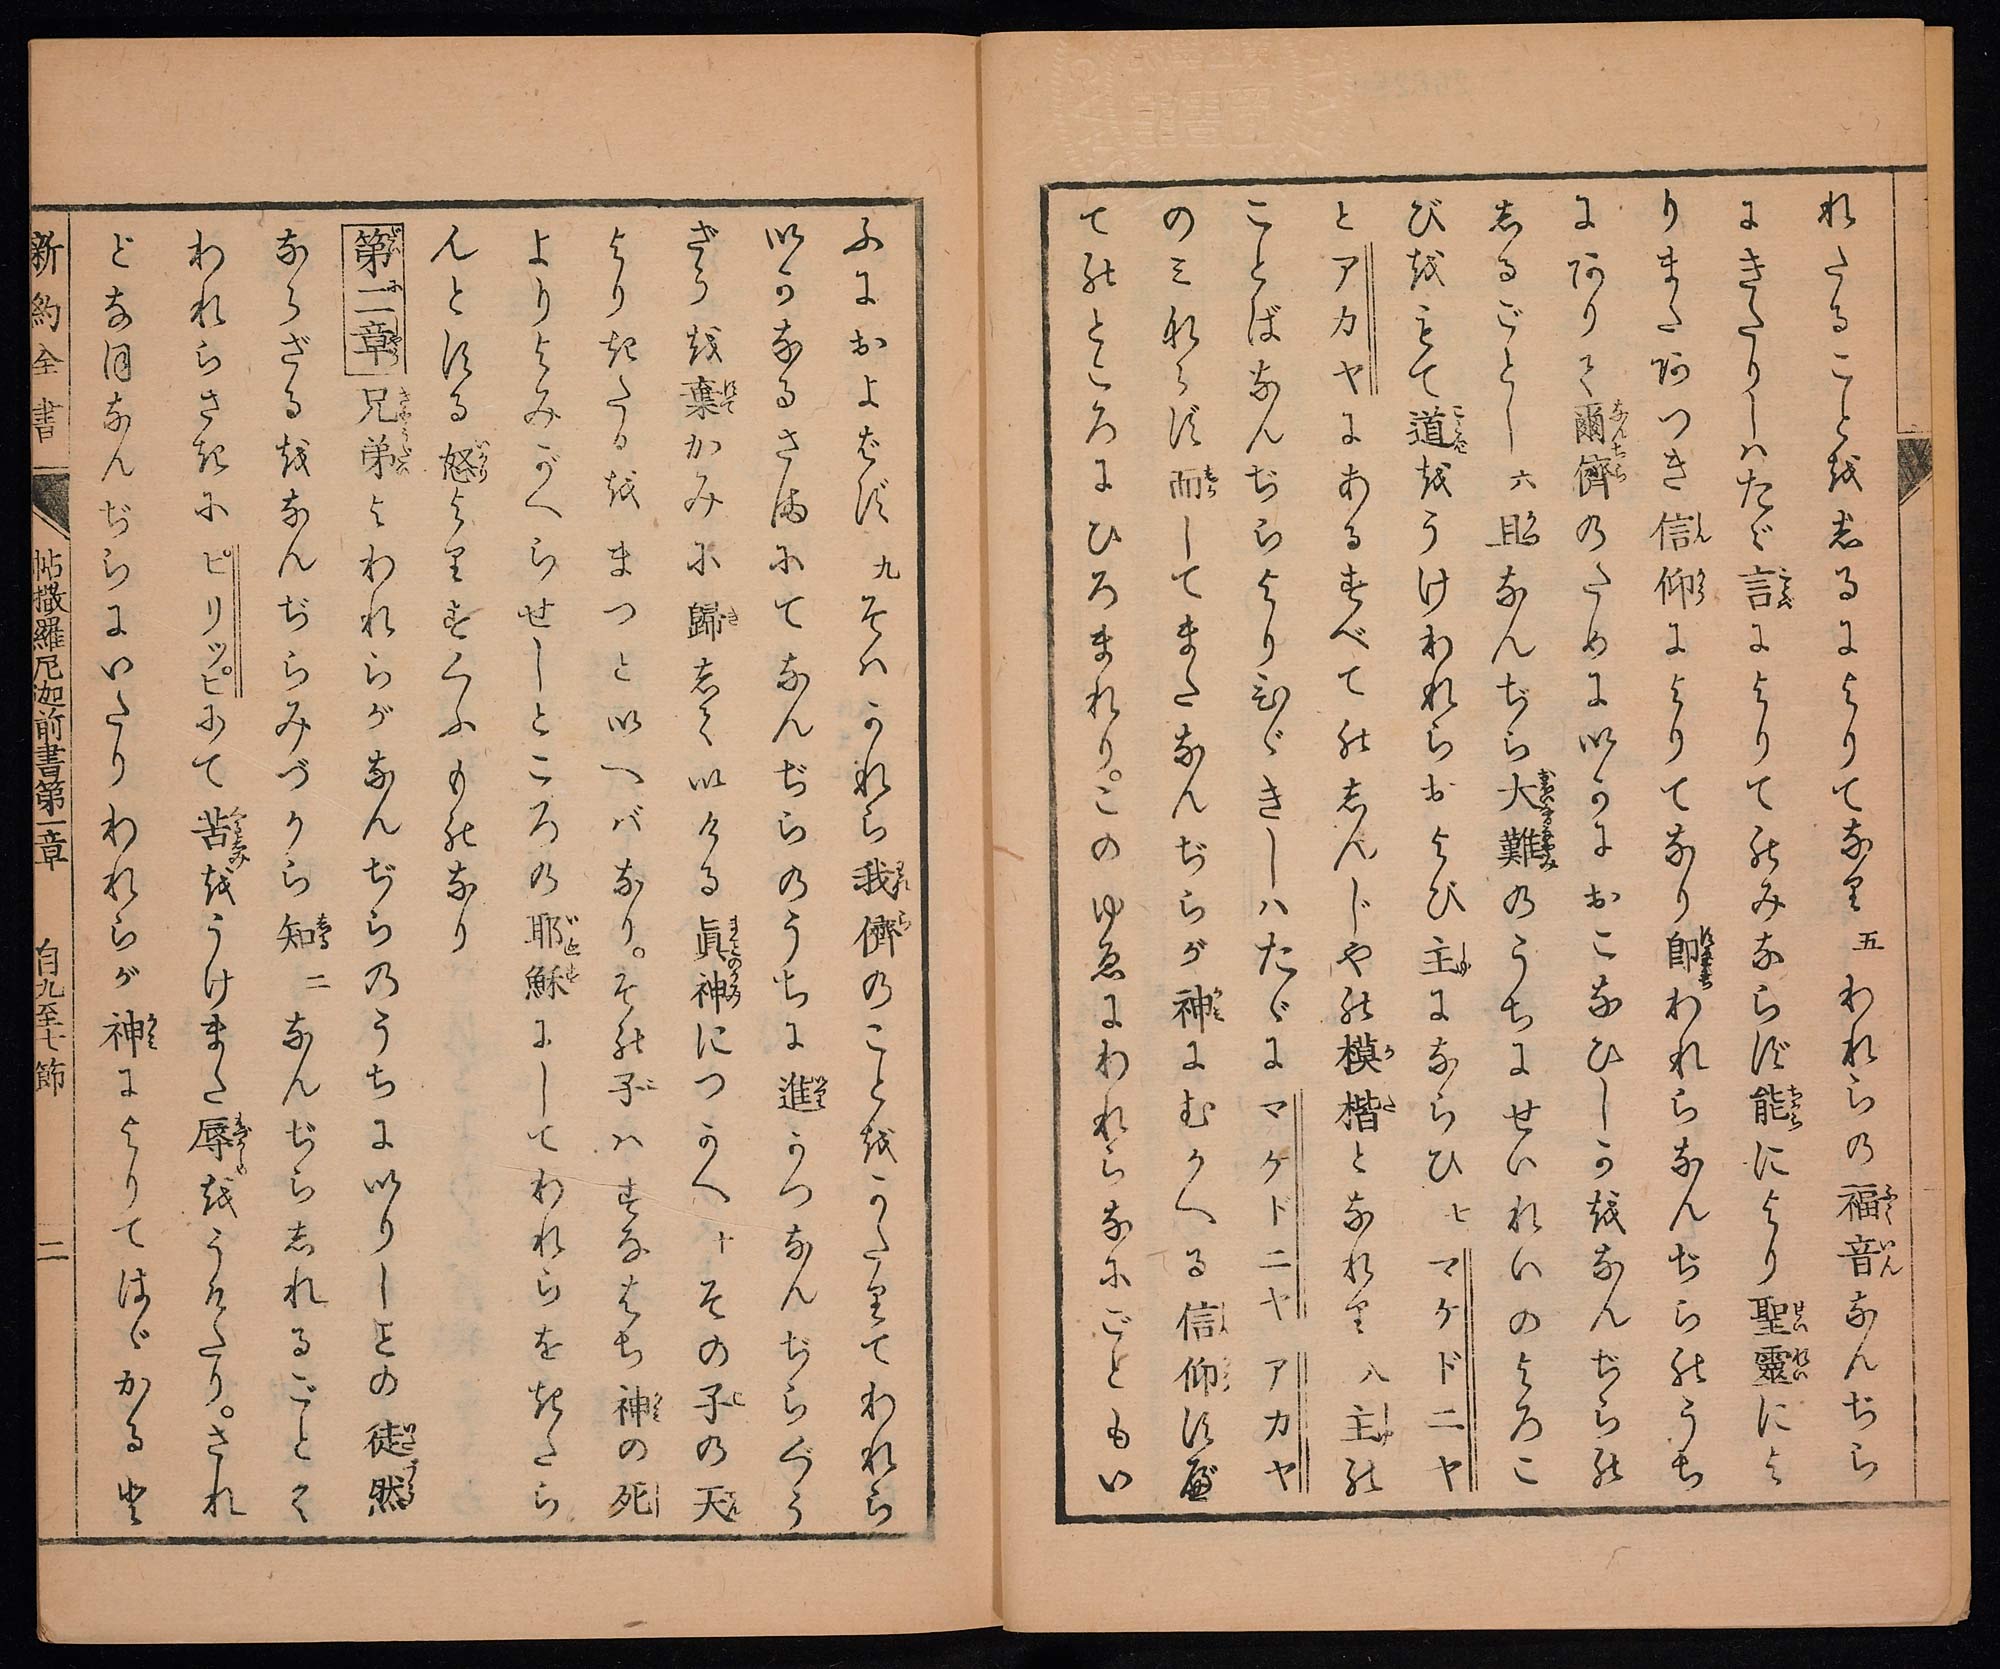 れたること越志るによりてなり 五 われらの福音なんぢら
にきたりしハたゞ言によりてのみならず能により聖靈によ
りまた阿つき信仰によりてなり即われらなんぢらのうち
に阿りて爾儕のために以かにおこなひしか越なんぢらの
志るごとし 六 且なんぢら大難のうちにせいれいのよろこ
び越もて道越うけわれらおよび主にならひ 七 マケドニヤ
とアカヤにあるすべての志んじやの模楷となれり 八 主の
ことばなんぢらよりひゞきしハたゞにマケドニヤ アカヤ
のミならず而してまたなんぢらが神にむかへる信仰すべ
てのところにひろまれり。このゆゑにわれらなにごともい
ふにおよばず 九 そハかれら我儕のこと越かたりてわれら
以かなるさまにて なんぢらのうちに進かつなんぢらぐう
ざう越棄かみに歸志て以ける眞神につかへ 十 その子の天
よりきたる越まつと以へバなり。その子ハすなはち神の死
よりよみがへらせしところの耶穌にしてわれらをきたら
んとする怒よりすくふものなり
第二章 兄弟よわれらがなんぢらのうちに以りしとの徒然
ならざる越なんぢらみづから知 二 なんぢら志れるごとく
われらさきにピリッピにて苦越うけまた辱越うけたり。され
どなほなんぢらにいたりわれらが神によりてはゞかる
新約全書 帖撒羅尼迦前書第一章 自九至七節 二